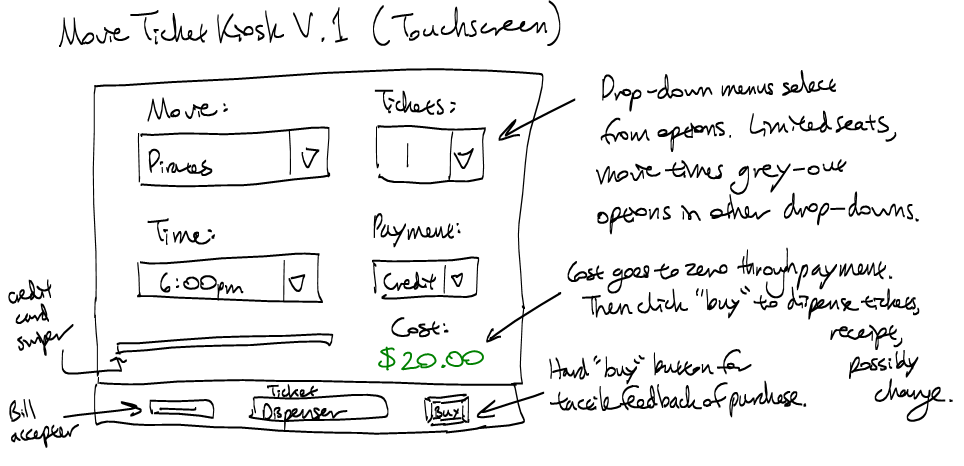 Movie Ticket Kiosk V.1 (Touchscreen)
Movie:
Pirates
Tickets:
1
Time:
6:00pm
Payment:
Credit
Cost:
$20.00
Ticket
Dispenser
Buy
credit
card
swiper
Bill
accepter
Drop-down menus select
from options. Limited seats,
movie times grey-out
options in other drop-downs.
Cost goes to zero through payment.
Then click "buy" to dipense tickets,
receipt,
possibly
change.
Hard "buy" button for
tactile feedback of purchase.